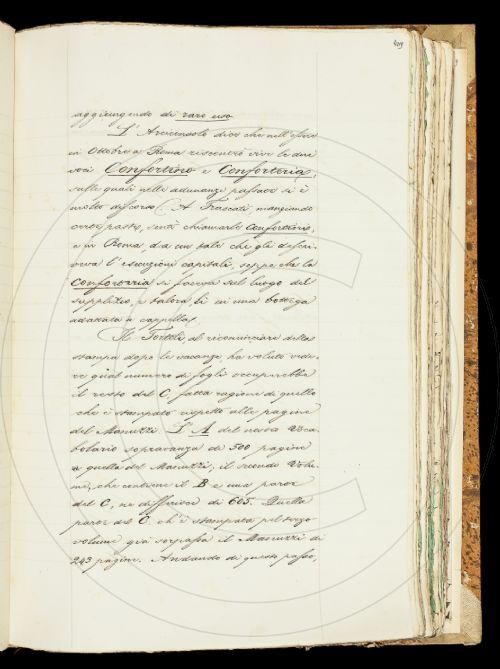 409
aggiungendo di raro uso.
L'Arciconsolo dice che nell'essere
in Ottobre a Roma riscontrò vive le due
voci Confortino e Conforteria,
sulle quali nelle adunanze passate si è
molto discorso. A Frascati, mangiando
certe paste, sentì chiamarle Confortini,
e in Roma, da un tale che gli descri-
veva l'esecuzioni capitali, seppe che la
Conforteria si faceva sul luogo del
supplizio, e talora lì in una bottega
adattata a cappella.
Il Tortoli, al ricominciare della
stampa dopo le vacanze, ha voluto vede-
re qual numero di fogli occuperebbe
il resto del C, fatta ragione di quello
che è stampato rispetto alle pagine
del Manuzzi. L'A del nostro Voca-
bolario sopravanza di 500 pagine
a quella del Manuzzi; il secondo Volu-
me, che contiene il B e una parte
del C, ne differisce di 605. Quella
parte del C che è stampata pel terzo
volume già sorpassa il Manuzzi di
243 pagine. Andando di questo passo,